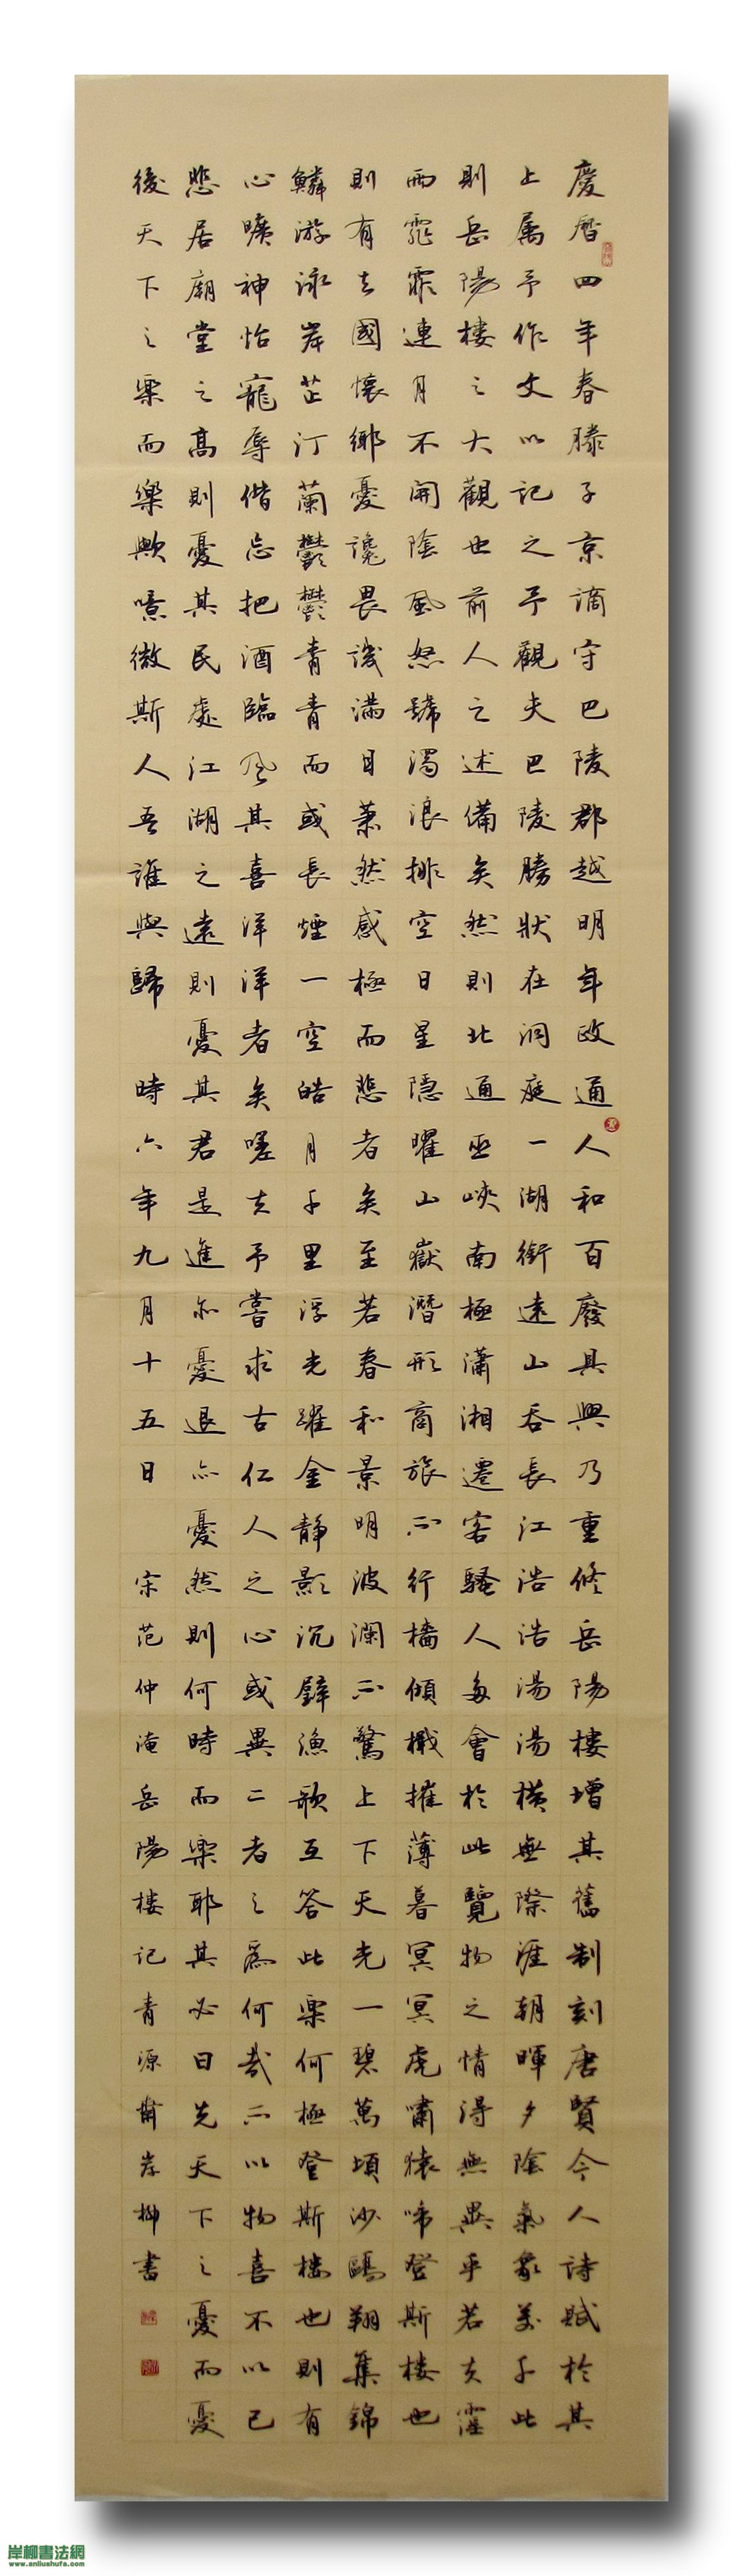 慶曆四年春滕子京謫守巴陵郡越明年政通人和百廢具興乃重修岳陽樓增其舊制刻唐賢今人詩賦於其
上属予作文以記之予觀夫巴陵勝狀在洞庭一湖銜遠山吞長江浩浩湯湯橫無際涯朝暉夕陰氣象萬千此
則岳陽樓之大觀也前人之述備矣然則北通巫峽南極瀟湘遷客騷人多會於此覽物之情得無異乎若夫霪
雨霏霏連月不開陰風怒號濁浪排空日星隱曜山嶽潛形商旅不行檣傾檝摧薄暮冥冥虎嘯猿啼登斯樓也
則有去國懷鄉憂讒畏譏滿目蕭然感極而悲者矣至若春和景明波瀾不驚上下天光一碧萬頃沙鷗翔集錦
鱗游泳岸芷汀蘭鬱鬱青青而或長煙一空皓月千里浮光躍金靜影沉璧漁歌互答此樂何極登斯樓也則有
心曠神怡寵辱偕忘把酒臨風其喜洋洋者矣嗟夫予嘗求古仁人之心或異二者之為何哉不以物喜不以己
悲居廟堂之高則憂其民處江湖之遠則憂其君是進亦憂退亦憂然則何時而樂耶其必曰先天下之憂而憂
後天下之樂而樂歟噫微斯人吾誰與歸 時六年九月十五日 宋范仲淹岳陽樓記青源岸柳書
岸柳書法網
www.anliushufa.com